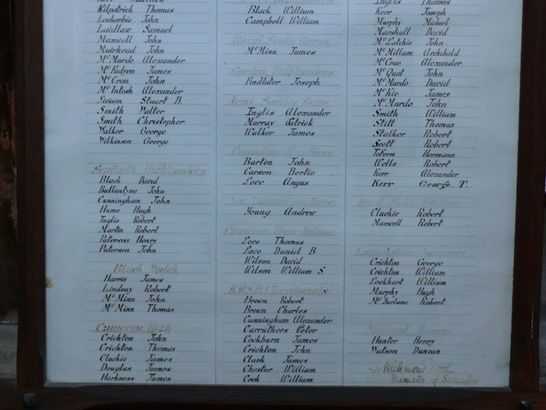 Kilpatrick Thomas
Lockerbie John
Laidlaw Samuel
Maxwell John
Muirhead John
McMurdo Alexander
McFadzen James
McCron John
McIntosh Alexander
Nivison Stuart B.
Smith Walter
Smith Christopher
Walker George
Wilkinson George
Seaforth Highlanders
Black David
Ballantyne John
Cunningham John
Hume Hugh
Inglis Robert
Martin Robert
Paterson Henry
Paterson John
Black Watch
Harris James
Lindsay Robert
McMinn John
McMinn Thomas
Cameron Highlanders
Crichton John
Crichton Thomas
Cluckie James
Douglas James
Harkness James
Black William
Campbell William
McMinn James
Findlater Joseph
Army Service Corps
Inglis Alexander
Murray Patrick
Walker James
Barton John
Carson Bertie
Love Angus
Young Andrew
Love Thomas
Love Daniel B
Wilson David
Wilson William S
K.O.S.B. (Territorial)
Brown Robert
Brown Charles
Cunningham Alexander
Carruthers Peter
Cockburn James
Crichton John
Clark James
Chester William
Cook William
Inglis Thomas
Kerr Joseph
Murphy Michael
Marshall David
McLatchie John
McMillam Archibald
McCrae Alexander
McQuat John
McMurdo David
McKie James
McMurdo John
Smith William
Stitt Thomas
Stalker Robert
Scott Robert
Totern Hermann
Wells Robert
Kerr Alexander
Kerr George. T.
Cluckie Robert
Maxwell Robert
Crichton George
Crichton William
Lockhart William
Murphy Hugh
McFarlane Robert
Hunter Henry
Watson Duncan
Minister of